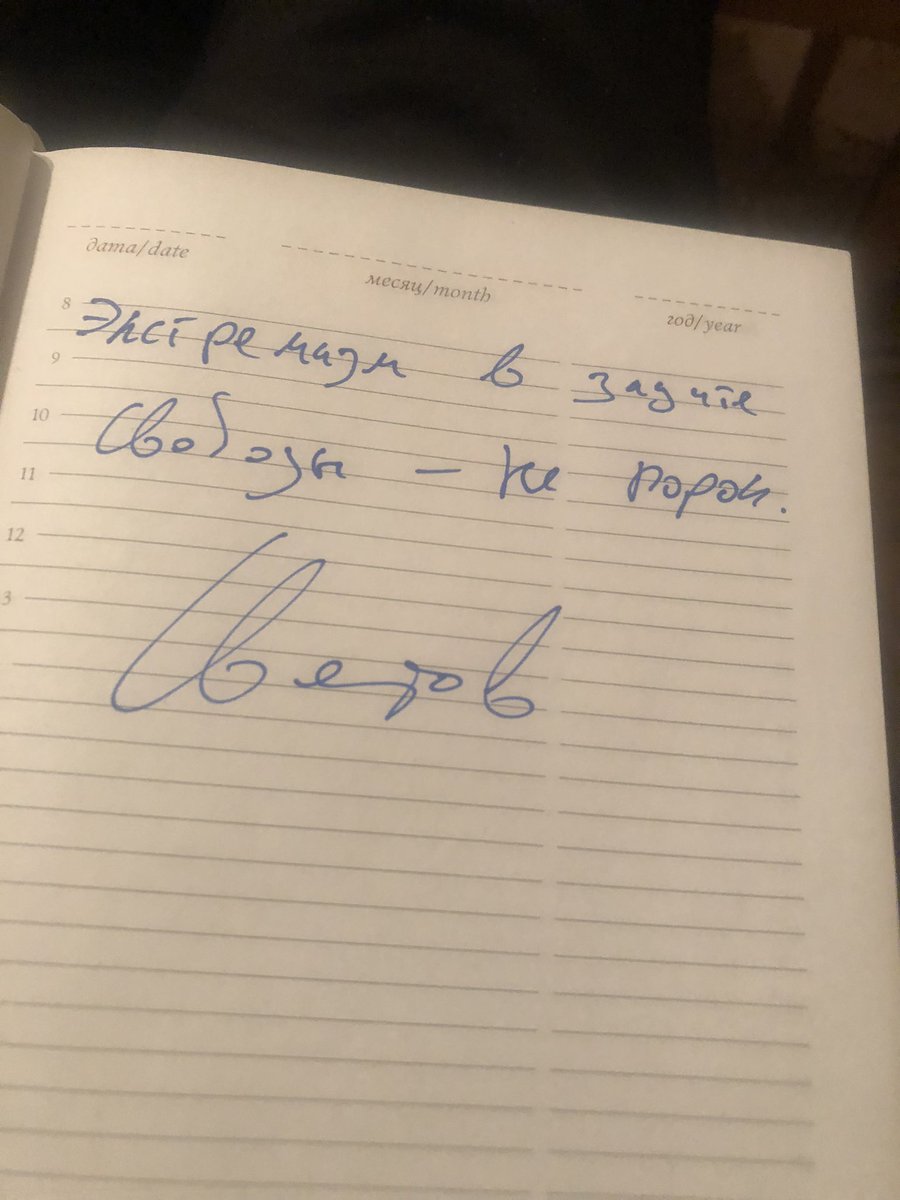 дата/date
месяц/month
год/year
8
Экстремизм в защите
9
10
Свободы – не порок.
11
12
Светов
3